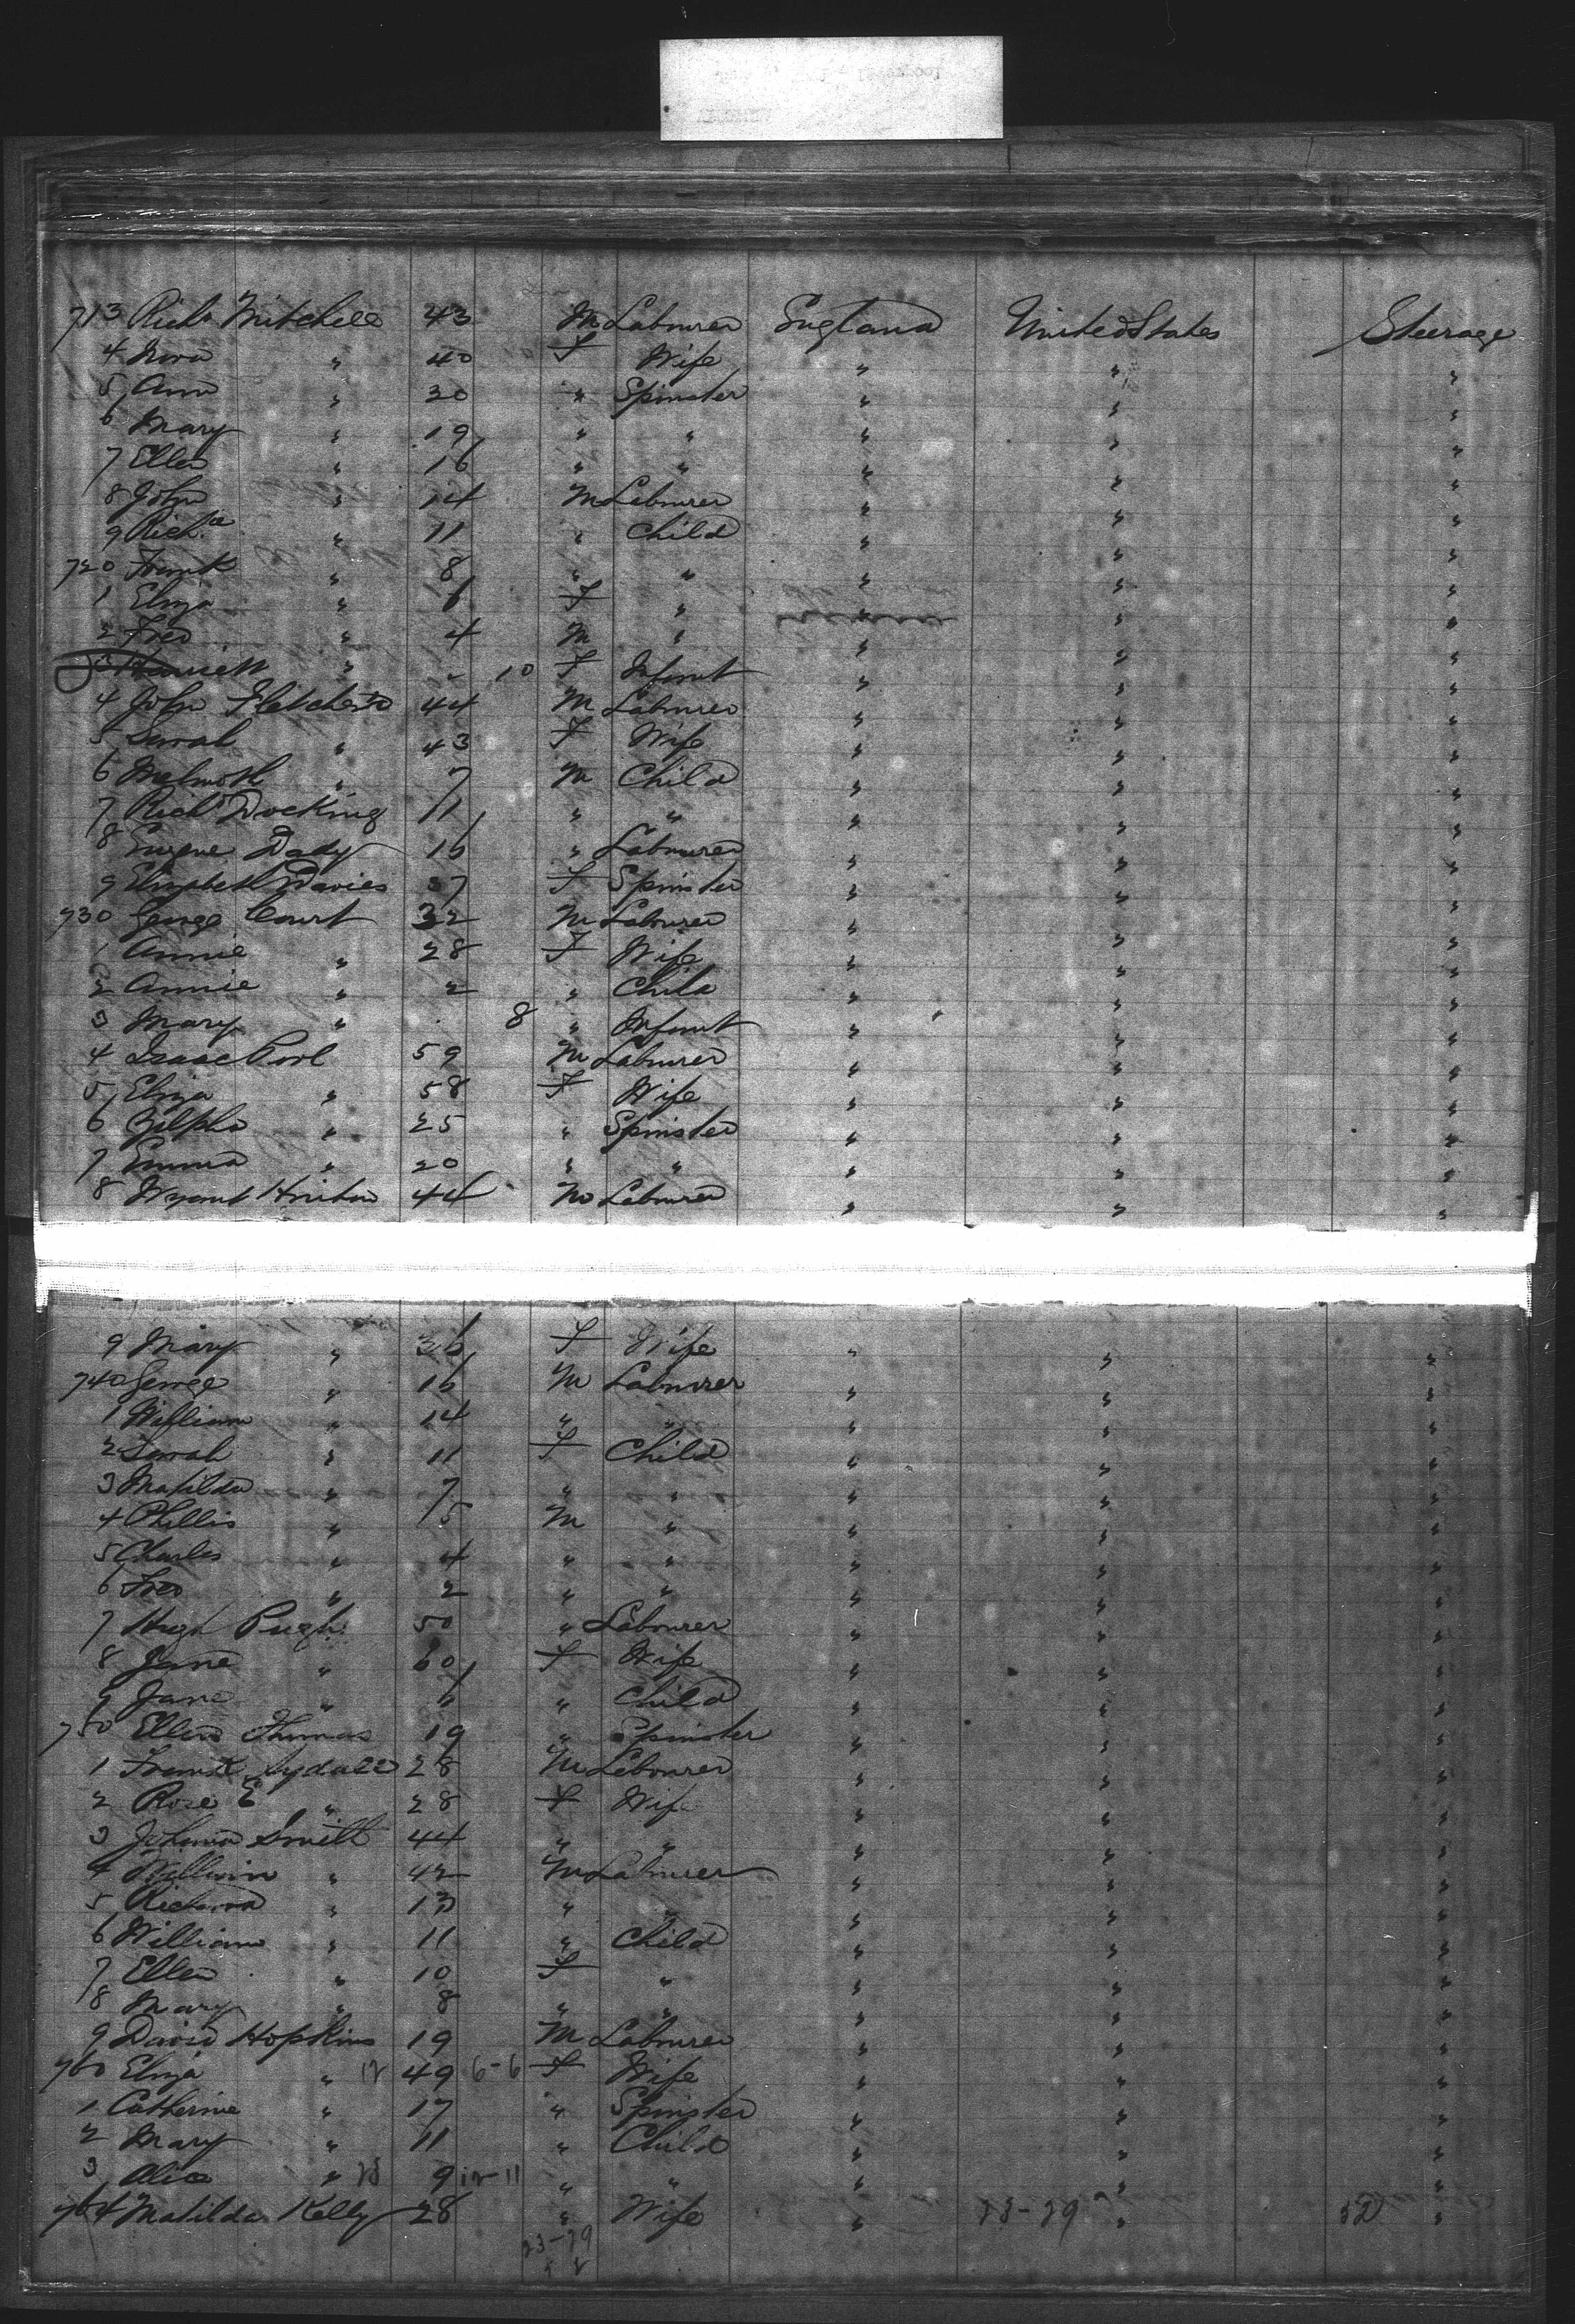 713 Richd Mitchell 43 M Labourer England United States Steerage
4 " 40 F Wife " " "
5 Ann " 20 " Spinster " " "
6 Mary " 19 " " " " "
7 Ellen " 16 " " " " "
8 John " 14 M Labourer " " "
9 Richd " 11 " Child " " "
720 Frank " 8 " " " " "
1 Eliza " 6 F " " " "
2 Fred " 4 M " " " "
3 " " 10 F Infant " " "
4 John Fletcher 44 M Labourer " " "
5 Sarah " 43 F Wife " " "
6 " 7 M Child " " "
7 Richd Docking 11 " " " " "
8 Eugene Dady 16 " Labourer " " "
9 Elizabeth Davies 37 F Spinster " " "
730 George Court 32 M Labourer " " "
1 Annie " 28 F Wife " " "
2 Annie " 2 " Child " " "
3 Mary " 8 " Infant " " "
4 Isaac Pool 59 M Labourer " " "
5 Eliza " 58 F Wife " " "
6 Zilpha " 25 " Spinster " " "
7 Emma " 20 " " " " "
8 44 M Labourer " " "
9 Mary " 36 F Wife " " "
740 George " 16 M Labourer " " "
1 William " 14 " " " " "
2 Sarah " 11 F Child " " "
3 Matilda " 7 " " " " "
4 Phillis " 5 M " " " "
5 Charles " 4 " " " " "
6 Fred " 2 " " " " "
7 Hugh Pugh 50 " Labourer " " "
8 Jane " 60 F Wife " " "
9 Jane " 6 " Child " " "
750 Ellen Thomas 19 " Spinster " " "
1 Frank 28 M Labourer " " "
2 Rose E " 28 F Wife " " "
3 Smith 44 " " " " "
4 William " 42 M Labourer " " "
5 Richard " 13 " " " " "
6 William " 11 " Child " " "
7 Ellen " 10 F " " " "
8 Mary " 8 " " " " "
9 David Hopkins 19 M Labourer " " "
760 Eliza " 12 49 6-6 F Wife " " "
1 Catherine " 17 " Spinster " " "
2 Mary " 11 " Child " " "
3 Alice " 9 12-11 " " " " "
764 Matilda Kelly 28 " Wife " " "